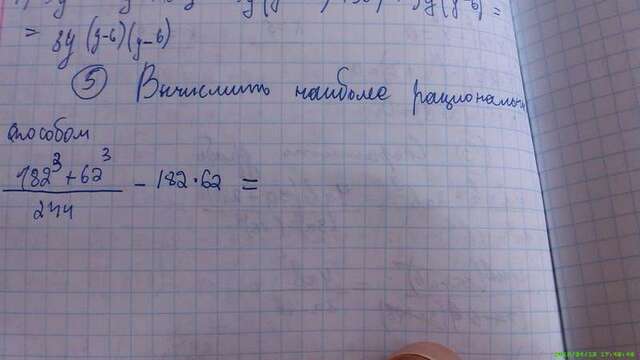 = 3y (y-6)(y-6)
⑤ Вычислить наиболее рациональным
способом
182³ + 62³
244
- 182·62 =